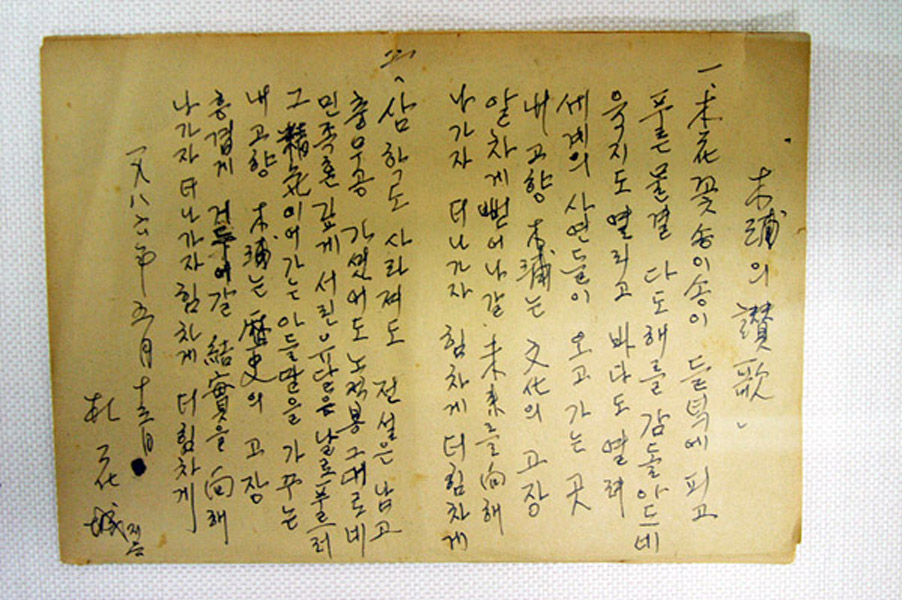 木浦의 讚歌
一. 木花꽃 송이송이 들녘에 피고
푸른물결 다도해를 감돌아드네
육지도 열리고 바다도 열려
세계의 사연들이 오고 가는 곳
내고향 木浦는 文化의 고장
알차게 뻗어나갈 未來를 向해
나가자 더나가자 힘차게 더힘차게
二. 삼학도 사라져도 전설은 남고
충무공 가셨어도 노적봉 그대로네
민족혼 깊게 서린 유달은 날로푸르러
그 精氣이어가는 아들딸을 가꾸는
내고향 木浦는 歷史의 고장
흥겹게 거두어갈 結實을 向해
나가자 더나가자 힘차게 더힘차게
一九八六年 五月 十三日
朴花城